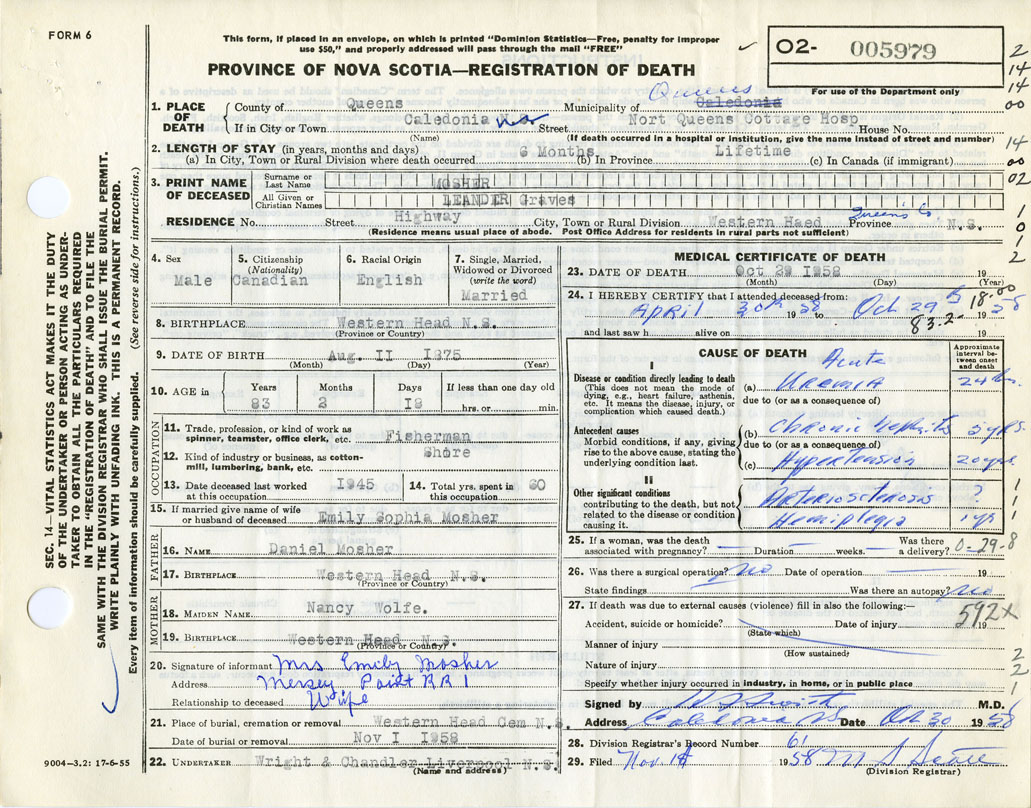 FORM 6
This form, if placed in an envelope, on which is printed "Dominion Statistics—Free, penalty for improper
use $50," and properly addressed will pass through the mail "FREE"
PROVINCE OF NOVA SCOTIA—REGISTRATION OF DEATH
02- 005979
For use of the Department only
2
14
14
00
14
00
02
1
0
1
2
SEC. 14—VITAL STATISTICS ACT MAKES IT THE DUTY
OF THE UNDERTAKER OR PERSON ACTING AS UNDER-
TAKER TO OBTAIN ALL THE PARTICULARS REQUIRED
IN THE "REGISTRATION OF DEATH" AND TO FILE THE
SAME WITH THE DIVISION REGISTRAR WHO SHALL ISSUE THE BURIAL PERMIT.
WRITE PLAINLY WITH UNFADING INK. THIS IS A PERMANENT RECORD.
Every item of information should be carefully supplied. (See reverse side for instructions.)
Queens
1. PLACE OF DEATH County of Queens Municipality of Caledonia
If in City or Town Caledonia N.S. Street Nort Queens Cottage Hosp House No.
(Name) (If death occurred in a hospital or institution, give the name instead of street and number)
2. LENGTH OF STAY (in years, months and days)
(a) In City, Town or Rural Division where death occurred 6 Months (b) In Province Lifetime (c) In Canada (if immigrant)
3. PRINT NAME OF DECEASED Surname or Last Name MOSHER
All Given or Christian Names LEANDER Graves
Queen's Co
RESIDENCE No. Street Highway City, Town or Rural Division Western Haed Province N.S.
(Residence means usual place of abode. Post Office Address for residents in rural parts not sufficient)
4. Sex Male
5. Citizenship (Nationality) Canadian
6. Racial Origin English
7. Single, Married, Widowed or Divorced (write the word) Married
8. BIRTHPLACE Western Head N.S.
(Province or Country)
9. DATE OF BIRTH Aug. II I875
(Month) (Day) (Year)
10. AGE in Years 83 Months 2 Days I8 If less than one day old hrs. or min.
OCCUPATION
11. Trade, profession, or kind of work as spinner, teamster, office clerk, etc. Fisherman
12. Kind of industry or business, as cotton-mill, lumbering, bank, etc. Shore
13. Date deceased last worked at this occupation I945
14. Total yrs. spent in this occupation 60
15. If married give name of wife or husband of deceased Emily Sophia Mosher
FATHER
16. NAME Daniel Mosher
17. BIRTHPLACE Western Head N.S.
(Province or Country)
MOTHER
18. MAIDEN NAME Nancy Wolfe.
19. BIRTHPLACE Western Head N.S.
(Province or Country)
20. Signature of informant Mrs Emily Mosher
Address Mersey Point RR 1
Relationship to deceased Wife
21. Place of burial, cremation or removal Western Head Cem N.S.
Date of burial or removal Nov I I958
22. UNDERTAKER Wright & Chandler Liverpool N.S.
(Name and address)
9004—3.2: 17-6-55
MEDICAL CERTIFICATE OF DEATH
23. DATE OF DEATH Oct 29 I958 19
(Month) (Day) (Year)
24. I HEREBY CERTIFY that I attended deceased from:
April 30th 1958 to Oct 29th 1958
18.00
83.2-
and last saw h alive on 19
CAUSE OF DEATH
Approximate interval between onset and death
I
Disease or condition directly leading to death
(This does not mean the mode of dying, e.g., heart failure, asthenia, etc. It means the disease, injury, or complication which caused death.)
(a) Acute Uremia 24 hrs.
due to (or as a consequence of)
Antecedent causes
Morbid conditions, if any, giving rise to the above cause, stating the underlying condition last.
(b) Chronic Nephritis 5 yrs.
due to (or as a consequence of)
(c) Hypertension 20 yrs.
II
Other significant conditions
contributing to the death, but not related to the disease or condition causing it.
Arteriosclerosis ?
Hemiplegia 1 yr
1
1
1
25. If a woman, was the death associated with pregnancy? Duration weeks. Was there a delivery?
0-29-8
26. Was there a surgical operation? No Date of operation 19
State findings Was there an autopsy? No
27. If death was due to external causes (violence) fill in also the following:—
592X
Accident, suicide or homicide? Date of injury 19
(State which)
Manner of injury
(How sustained)
2
Nature of injury
2
Specify whether injury occurred in industry, in home, or in public place
1
Signed by Smith M.D.
1
Address Caledonia NS Date Oct 30 1958
28. Division Registrar's Record Number 61
29. Filed Nov. 1958 M S Scott
(Division Registrar)